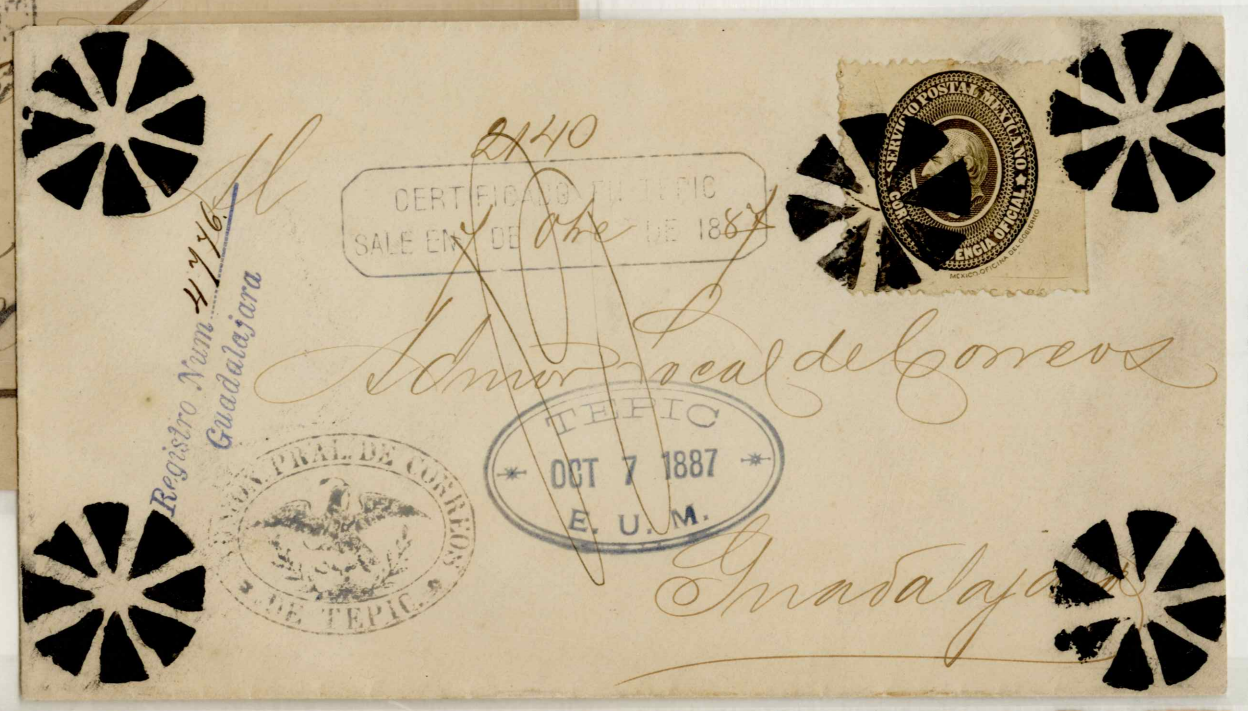 2140
Al
CERTIFICADO EN TEPIC
SALE EN 7 DE Obre DE 1887
SERVICIO POSTAL MEXICANO
CORRESPONDENCIA OFICIAL
MEXICO. OFICINA DEL GOBIERNO
Registro Num 4776
Guadalajara
Admor Local de Correos
TEPIC
OCT 7 1887
E. U. M.
PRAL. DE CORREOS
DE TEPIC.
Guadalajara